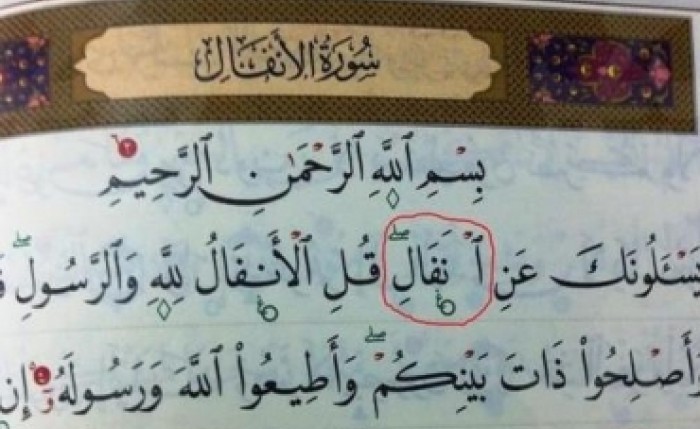 سُورَةُ الأَنفَالِ
بِسْمِ ٱللَّهِ ٱلرَّحْمَٰنِ ٱلرَّحِيمِ
يَسْـَٔلُونَكَ عَنِ ٱ نَفَالِ ۖ قُلِ ٱلْأَنفَالُ لِلَّهِ وَٱلرَّسُولِ ۖ
وَأَصْلِحُوا۟ ذَاتَ بَيْنِكُمْ ۖ وَأَطِيعُوا۟ ٱللَّهَ وَرَسُولَهُۥٓ إِن